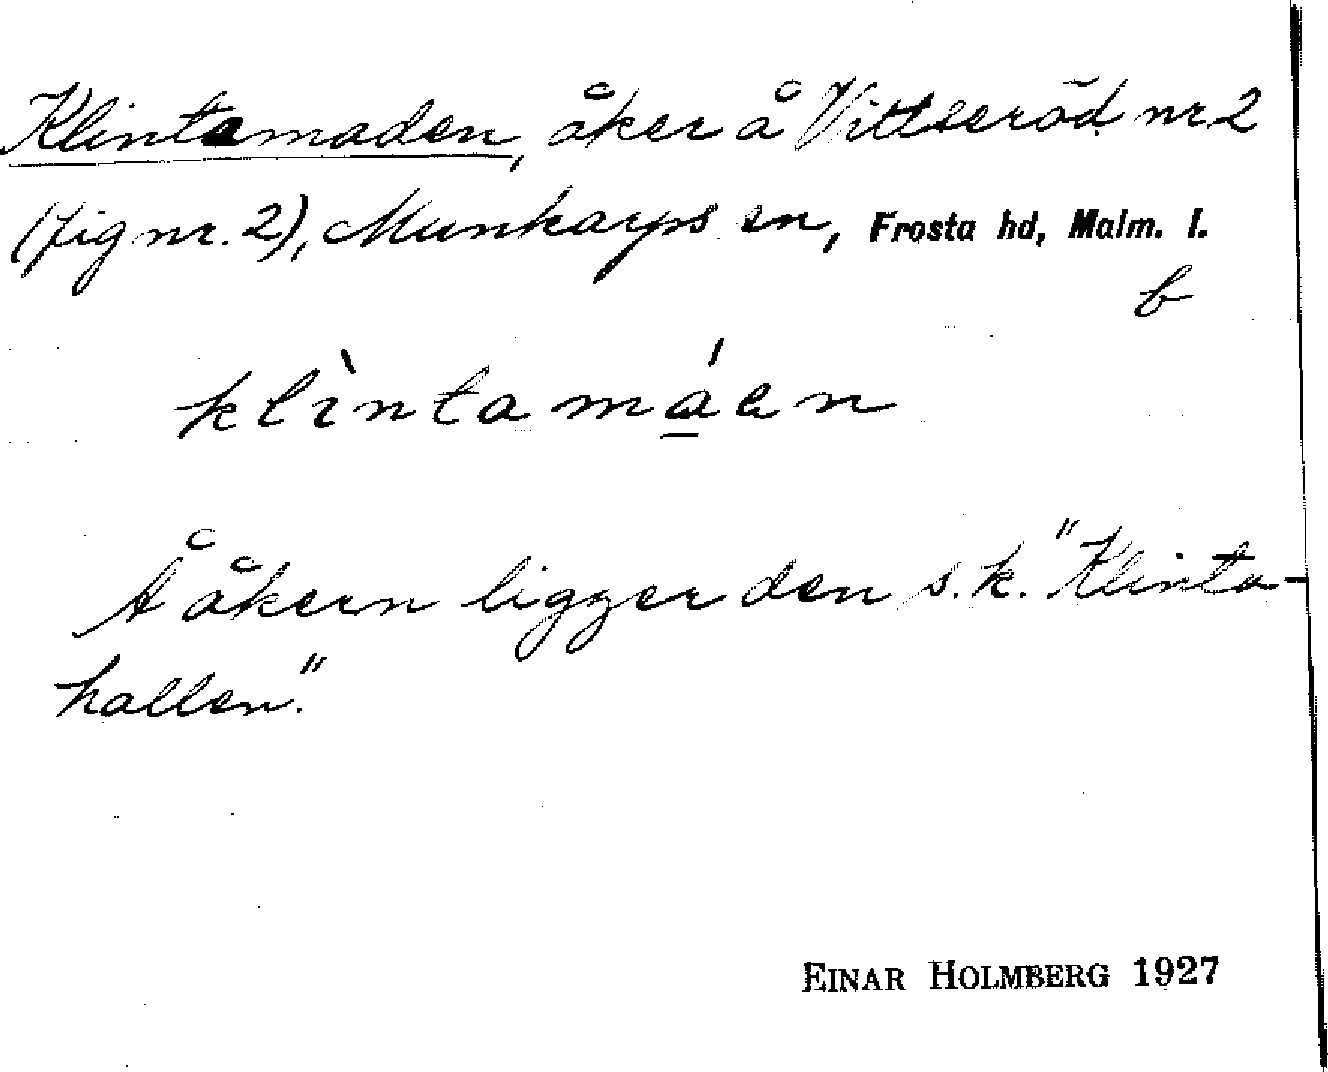 Klintamaden, åker å Vittseröd nr 2
(fig nr. 2), Munkarps sn, Frosta hd, Malm. l.
b
klìntamáen
Å åkern ligger den s.k. "Klinta-
hallen."
EINAR HOLMBERG 1927